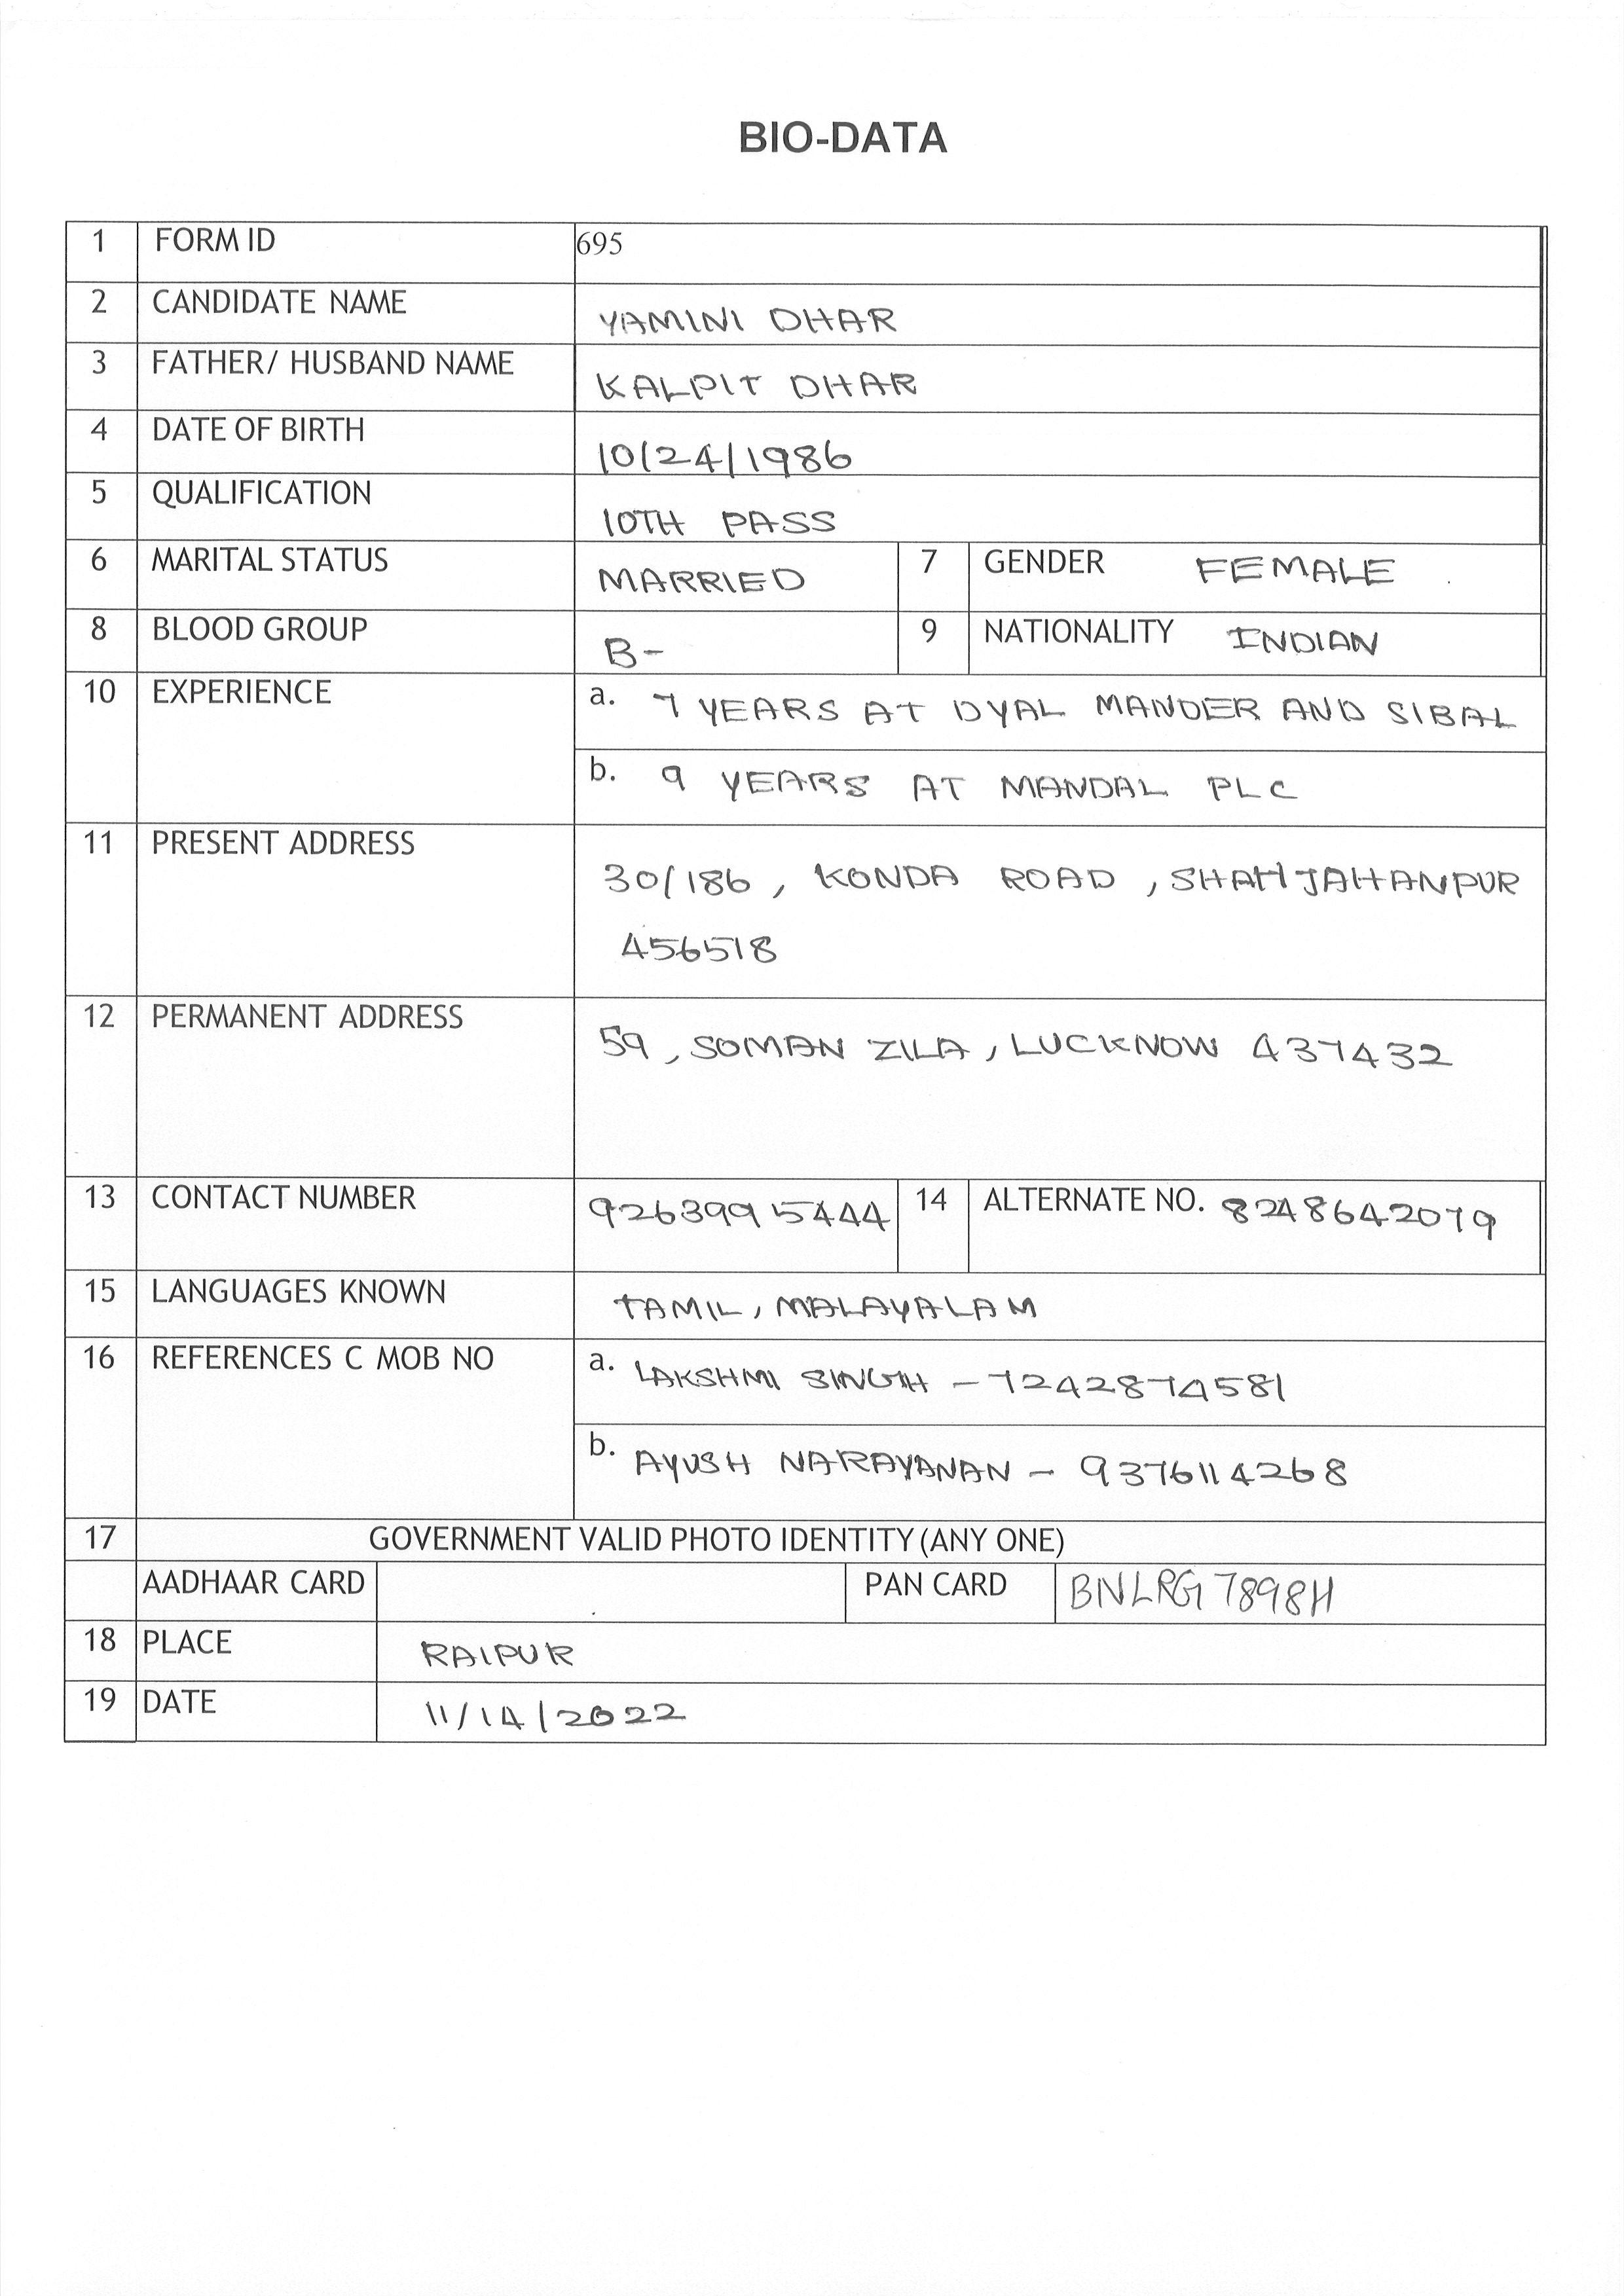 BIO-DATA
1 FORM ID 695
2 CANDIDATE NAME YAMINI DHAR
3 FATHER/ HUSBAND NAME KALPIT DHAR
4 DATE OF BIRTH 10/24/1986
5 QUALIFICATION 10TH PASS
6 MARITAL STATUS MARRIED 7 GENDER FEMALE
8 BLOOD GROUP B- 9 NATIONALITY INDIAN
10 EXPERIENCE a. 7 YEARS AT DYAL MANDER AND SIBAL
b. 9 YEARS AT MANDAL PLC
11 PRESENT ADDRESS 30/186, KONDA ROAD, SHAHJAHANPUR
456518
12 PERMANENT ADDRESS 59, SOMAN ZILA, LUCKNOW 437432
13 CONTACT NUMBER 92639915444 14 ALTERNATE NO. 8248642079
15 LANGUAGES KNOWN TAMIL, MALAYALAM
16 REFERENCES C MOB NO a. LAKSHMI SINGH - 7242874581
b. AYUSH NARAYANAN - 9376114268
17 GOVERNMENT VALID PHOTO IDENTITY (ANY ONE)
AADHAAR CARD PAN CARD BNLRG7898H
18 PLACE RAIPUR
19 DATE 11/14/2022